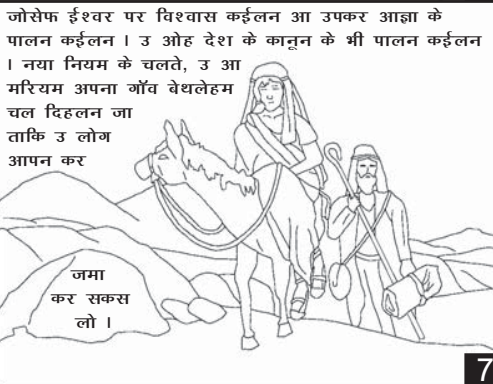 जोसेफ ईश्वर पर विश्वास कईलन आ उपकर आज्ञा के
पालन कईलन । उ ओह देश के कानून के भी पालन कईलन
। नया नियम के चलते, उ आ
मरियम अपना गॉव बेथलेहम
चल दिहलन जा
ताकि उ लोग
आपन कर
जमा
कर सकस
लो ।
7